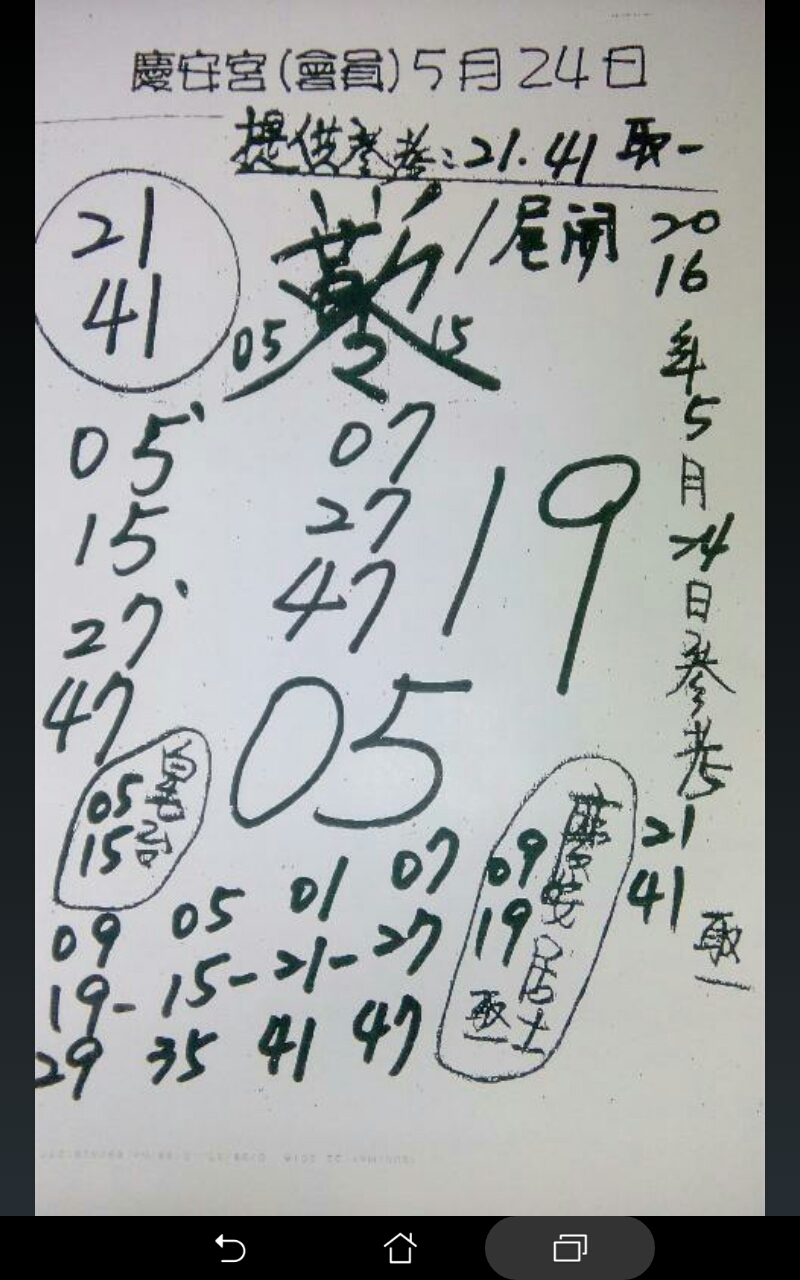 慶安宮(會員)5月24日
提供參考:21.41 取一
21
41
1尾開
05 15
2016年5月24日參考
21
41
取一
05
15
27
47
07
27
47
19
05
05
15
09 05 01 07
19-15-21-27
29 35 41 47
09
19
慶安居士
取一